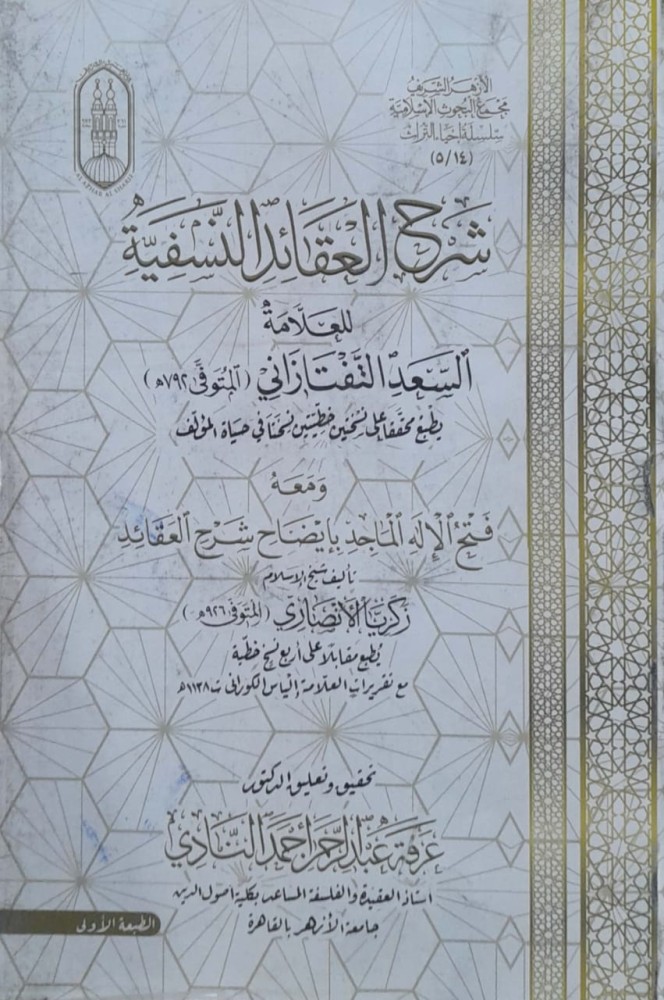 الأزهر الشريف
مجمع البحوث الإسلامية
سلسلة إحياء التراث
(٥/١٤)
AL AZHAR AL SHARIF
شَرْحُ العَقَائِدِ النَّسَفِيَّةِ
للعَلَّامَةِ
السَّعدِ التَّفْتَازَانِي (المُتوفَّى ٧٩٢هـ)
يطبع محققًا على نسختين خطيتين نسختا في حياة المؤلف
وَمَعَهُ
فَتْحُ الإِلَهِ المَاجِدِ بإيضَاحِ شَرْحِ العَقَائِدِ
تأليف شيخ الإسلام
زكريَّا الأنصَارِي (المتوفى ٩٢٦هـ)
يُطبع مقابلًا على أربع نسخ خطية
مع تقريرات العلامة إلياس الكوراني ت ١١٣٨هـ
تحقيق وتعليق الدكتور
عرفة عبد الرحمن أحمد النَّادي
أستاذ العقيدة والفلسفة المساعد بكلية أصول الدين
جامعة الأزهر بالقاهرة
الطبعة الأولى